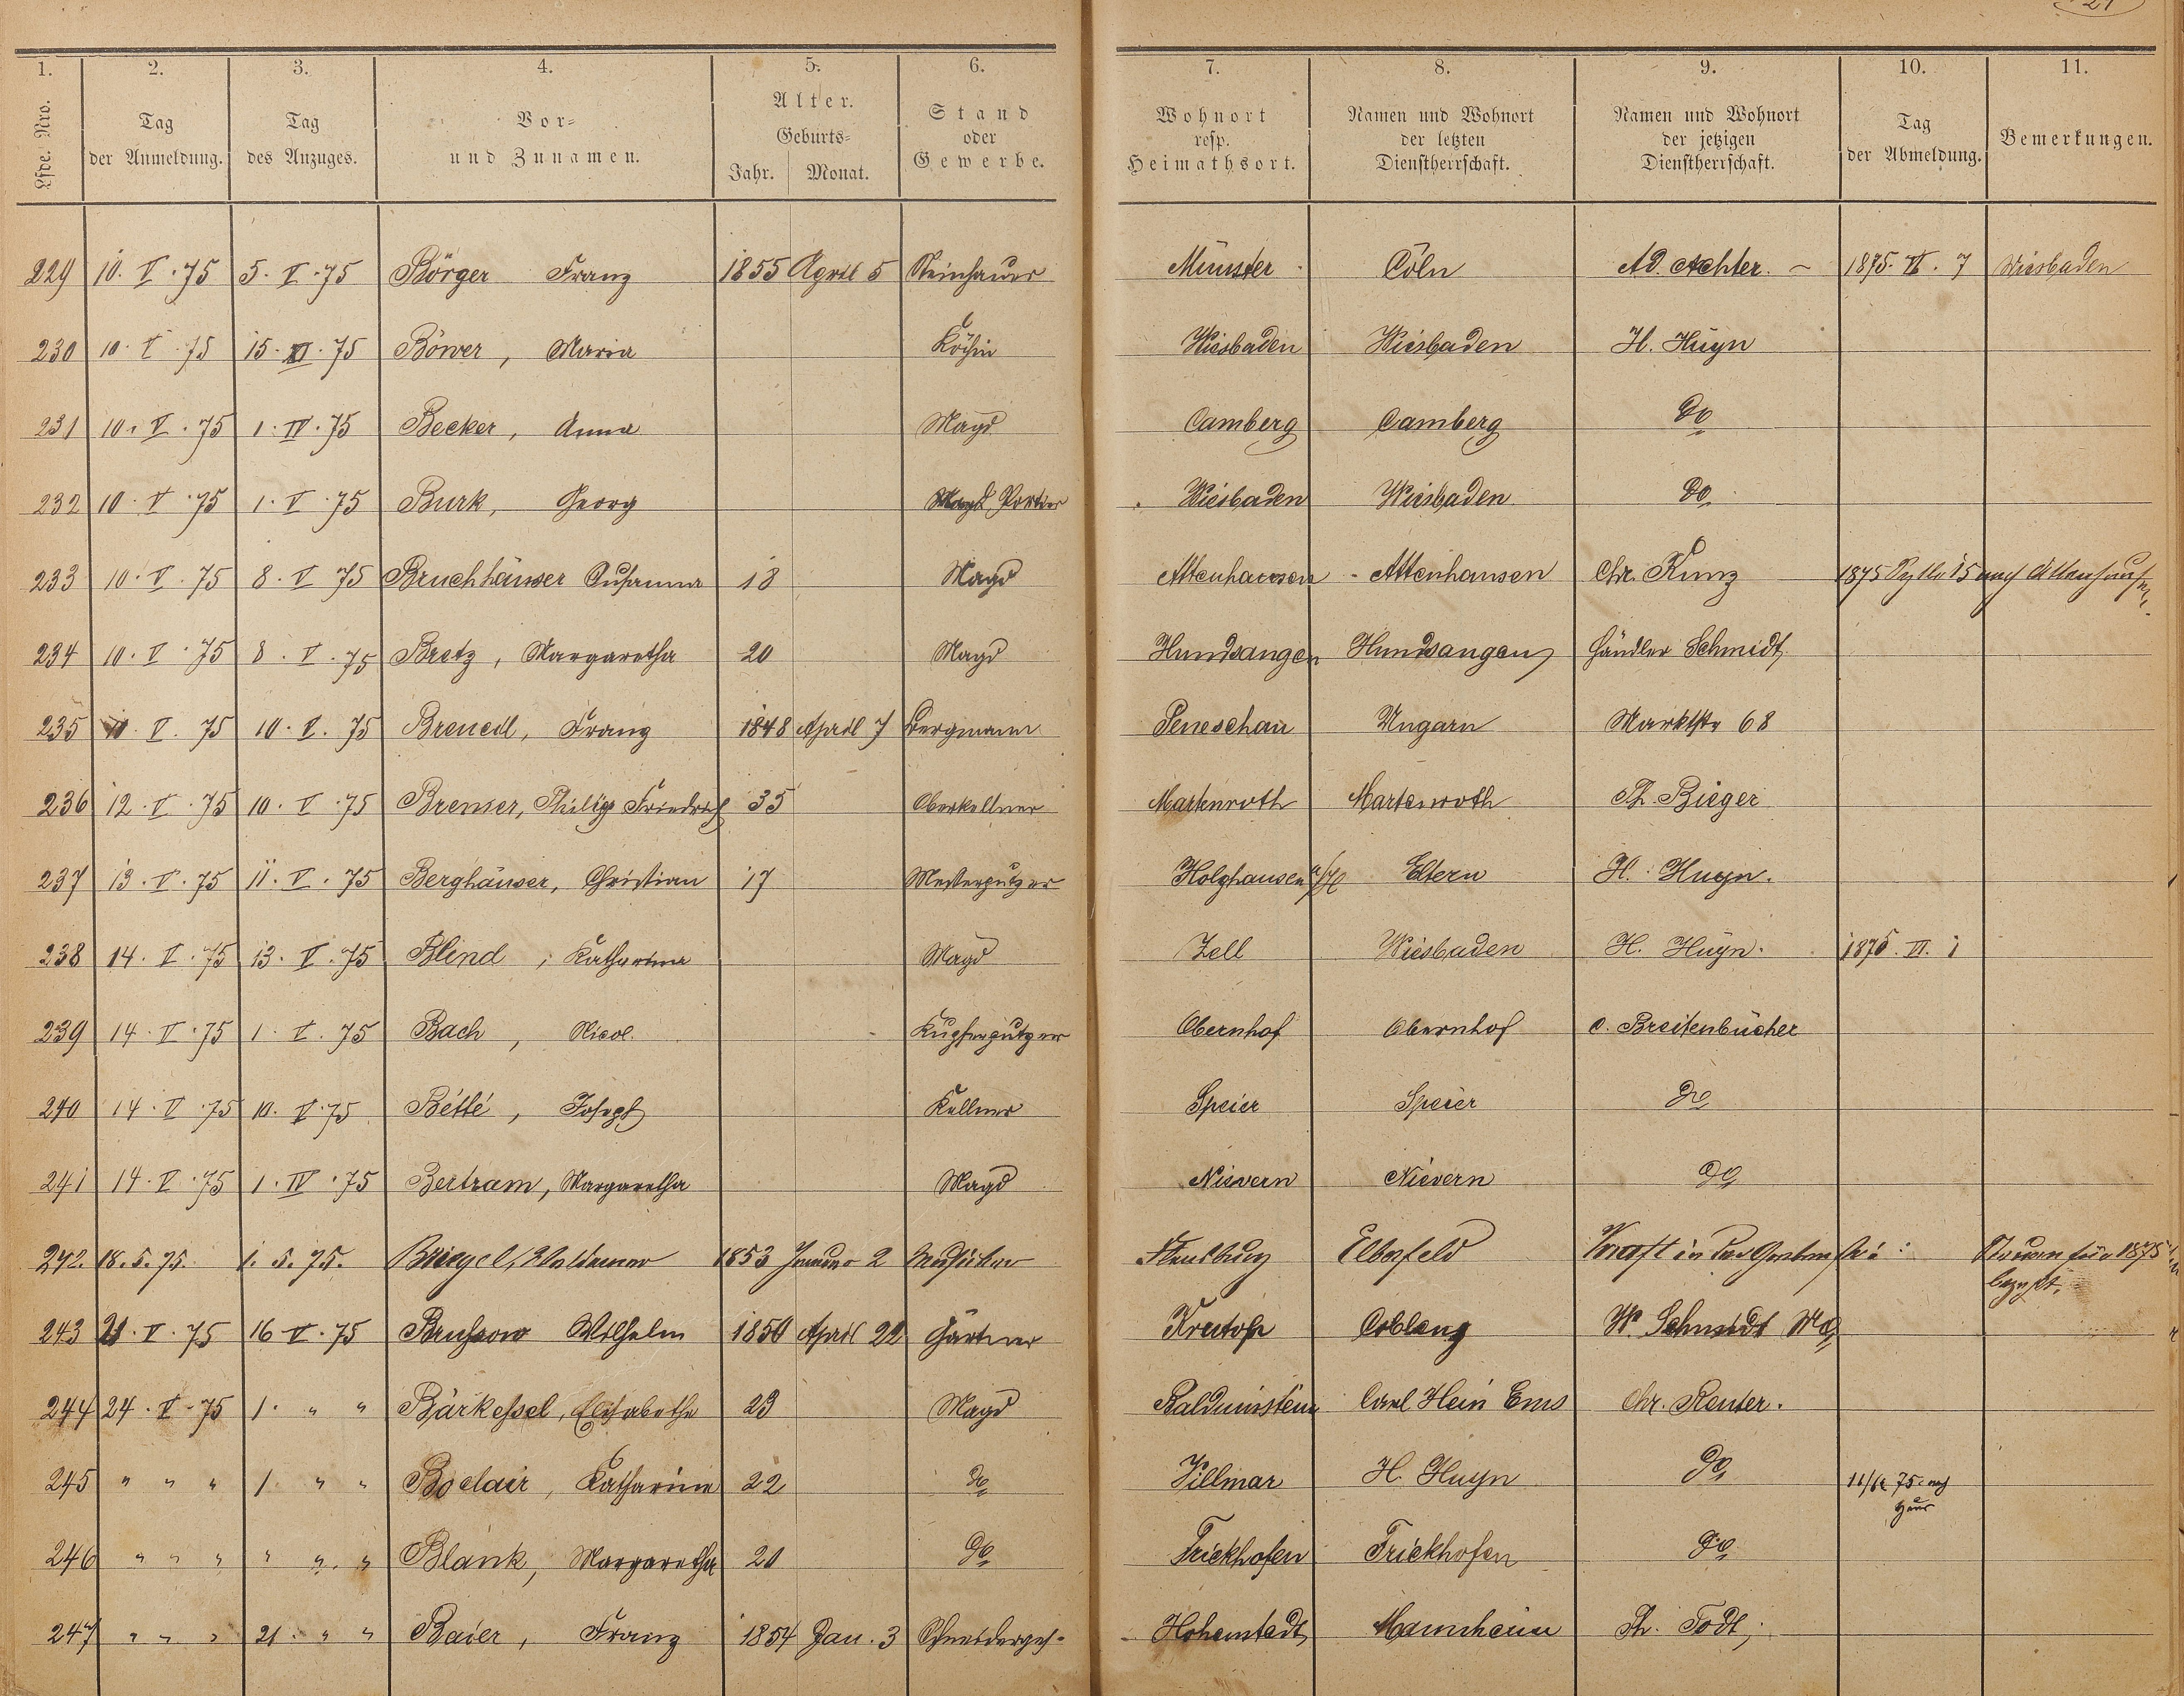 21
1. 2. 3. 4. 5. 6. 7. 8. 9. 10. 11.
Lfde. Nro. | Tag der Anmeldung. | Tag des Anzuges. | Vor- und Zunamen. | Alter. Geburts- Jahr. Monat. | Stand oder Gewerbe. | Wohnort resp. Heimathsort. | Namen und Wohnort der letzten Dienstherrschaft. | Namen und Wohnort der jetzigen Dienstherrschaft. | Tag der Abmeldung. | Bemerkungen.
229 10. V. 75 5. V. 75 Börger Franz 1855 April 5 Steinhauer Münster Cöln Ad. Achter. – 1875. VI. 7 Wiesbaden
230 10. V. 75 15. 75 Böwer, Maria Köchin Wiesbaden Wiesbaden H. Huyn
231 10. V. 75 1. IV. 75 Becker, Anna Magd Camberg Camberg do
232 10. V. 75 1. V. 75 Burk, Georg Portier Wiesbaden Wiesbaden do
233 10. V. 75 8. V 75 Bruchhäuser Susanna 18 Magd Attenhausen - Attenhausen Chr. Kunz 1875 15 nach Attenhausen
234 10. V. 75 8. V. 75 Bretz, Margaretha 20 Magd Hundsangen Hundsangen Händler Schmidt
235 10. V. 75 10. V. 75 Brenedl, Franz 1848 April 7 Bergmann Peneschau Ungarn Marktstr 68
236 12. V. 75 10. V. 75 Bremser, Philipp Friedrich 35 Oberkellner Martenroth Martenroth Ph. Bieger
237 13. V. 75 11. V. 75 Berghäuser, Christian 17 Messerputzer Holzhausen a/H Eltern H. Huyn.
238 14. V. 75 13. V. 75 Blind, Katharina Magd Zell Wiesbaden H. Huyn. 1875. VI. 1
239 14. V. 75 1. V. 75 Bach, Nicol. Kupferputzer Obernhof Obernhof C. Breitenbücher
240 14. V. 75 10. V. 75 Bétté, Joseph Kellner Speier Speier do
241 14. V. 75 1. IV. 75 Bertram, Margaretha Magd Nievern Nievern do
242. 18. 5. 75. 1. 5. 75. Briegel, Waldemar 1853 Januar 2 Musiker Flensburg Elberfeld Kraft in der Steuern für 1875 bezahlt.
243 21. V. 75 16 V. 75 Brussow Wilhelm 1850 April 22 Gärtner Coblenz W. Schmidt
244 24. V. 75 1. " " Bärkessel, Elisabetha 23 Magd Balduinstein Carl Hein Ems Chr. Reuter.
245 " " " 1. " " Boclair, Katharina 22 do Villmar H. Huyn do 11/6 75. nach Haus
246 " " " " " " Blank, Margaretha 20 do Frickhofen Frickhofen do
247 " " " 21. " " Baier, Franz 1854 Jan. 3 Schneidergeh- Hohenstadt Mannheim Ph. Todt,